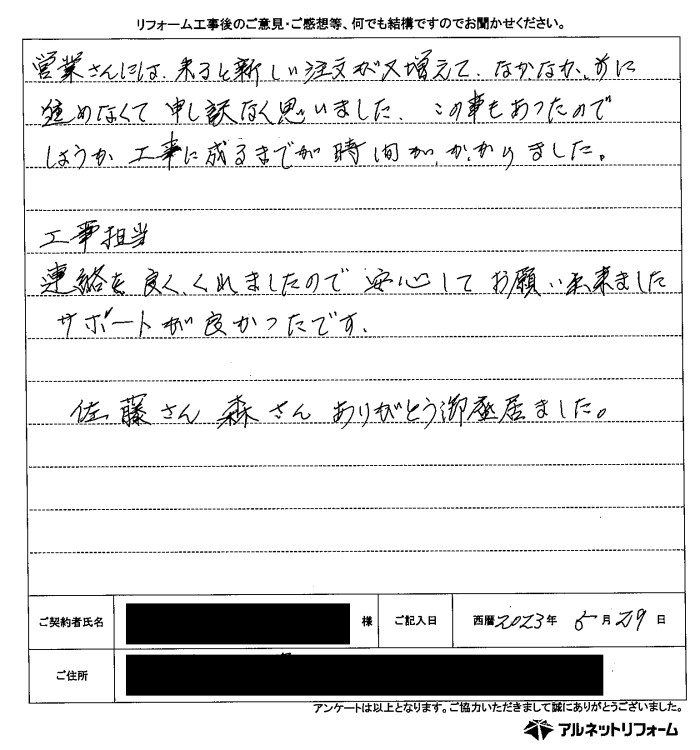 リフォーム工事後のご意見・ご感想等、何でも結構ですのでお聞かせください。
営業さんには、来ると新しい注文が又増えて、なかなか、前に
進めなくて申し訳なく思いました、この事もあったので
しょうか工事に成るまでが時間が、かかりました。
工事担当
連絡を良く、くれましたので安心してお願い出来ました
サポートが良かったです、
佐藤さん 森さん ありがとう御座居ました。
ご契約者氏名 様 ご記入日 西暦2023年 5月29日
ご住所
アンケートは以上となります。ご協力いただきまして誠にありがとうございました。
アルネットリフォーム